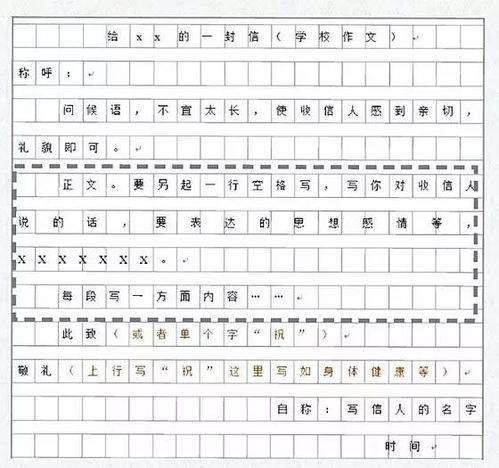 给xx的一封信（学校作文）
称呼：
问候语，不宜太长，使收信人感到亲切，
礼貌即可。
正文。要另起一行空格写，写你对收信人
说的话，要表达的思想感情等，
XXXXXXX。
每段写一方面内容……
此致（或者单个字“祝”）
敬礼（上行写“祝”这里写如身体健康等）
自称：写信人的名字
时间